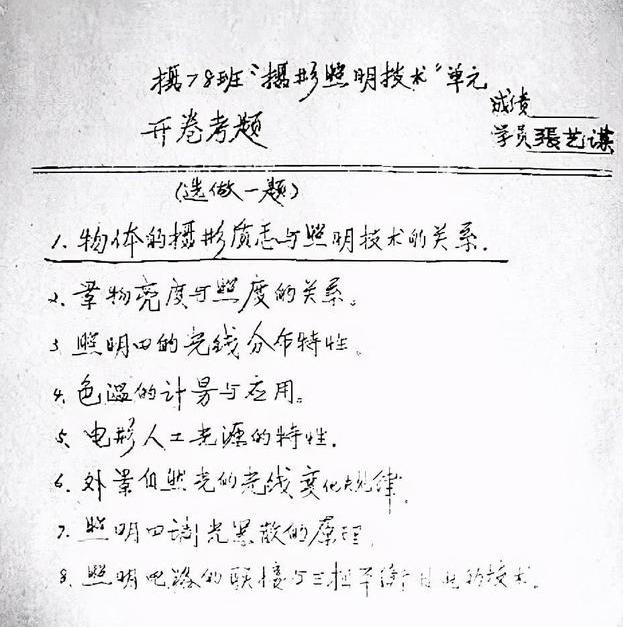 摄78班“摄影照明技术”单元
成绩
开卷考题
学员 張艺谋
(选做一题)
1. 物体的摄影质感与照明技术的关系.
2. 景物亮度与照度的关系。
3. 照明用的光线分布特性。
4. 色温的计易与应用。
5. 电影人工光源的特性.
6. 外景自然光的光线变化规律.
7. 照明 调光 散的原理.
8. 照明电路的联接与三相平衡 的技术.